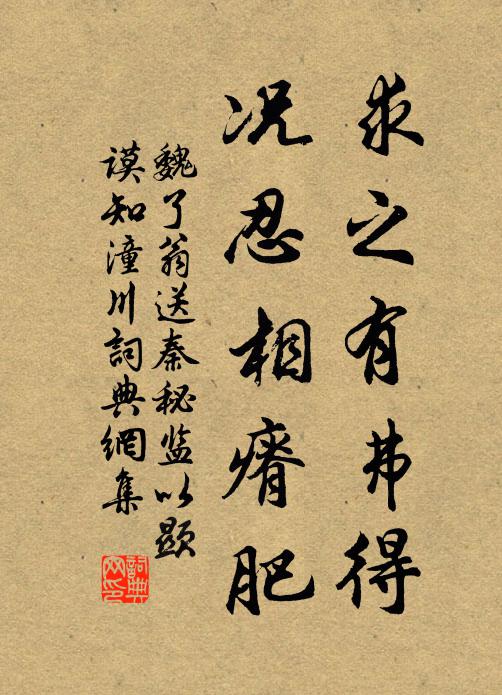 求之有弗得
况忍相瘠肥
魏了翁送秦秘监以显
谟知潼川詞典網集
詞典
网印